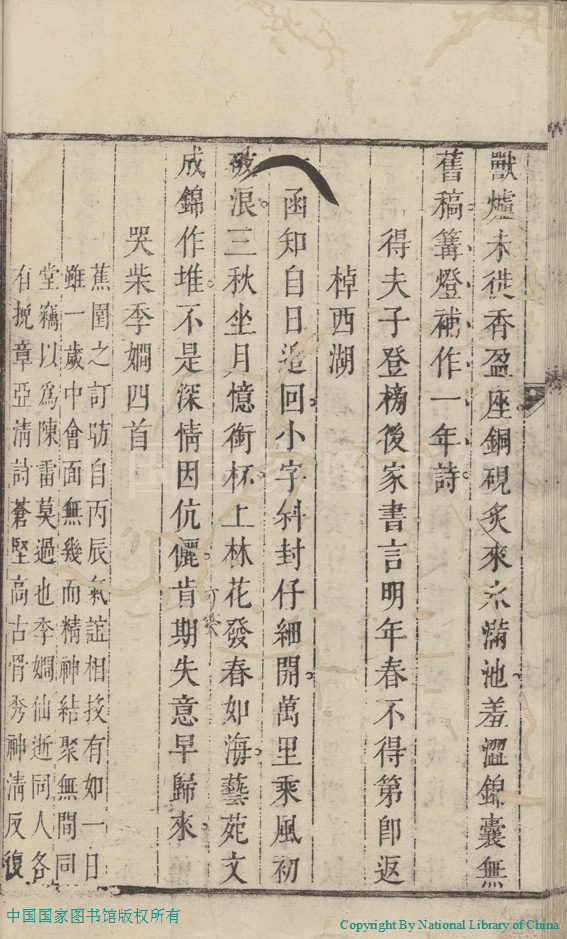 獸爐未徙香盈座銅硯炙來氷滿池羞澀錦囊無
舊稿篝燈補作一年詩
得夫子登榜後家書言明年春不得第即返
棹西湖
一函知自日邉回小字斜封仔細開萬里乘風初
破浪三秋坐月憶銜杯上林花發春如海藝苑文
成錦作堆不是深情因伉儷肯期失意早歸來
哭柴季嫺四首
蕉園之訂昉自丙辰氣誼相投有如一日
雖一歲中會面無幾而精神結聚無間同
堂竊以爲陳雷莫過也季嫺仙逝同人各
有挽章亞清詩蒼堅高古骨秀神清反復
中国国家图书馆版权所有
Copyright By National Library of China